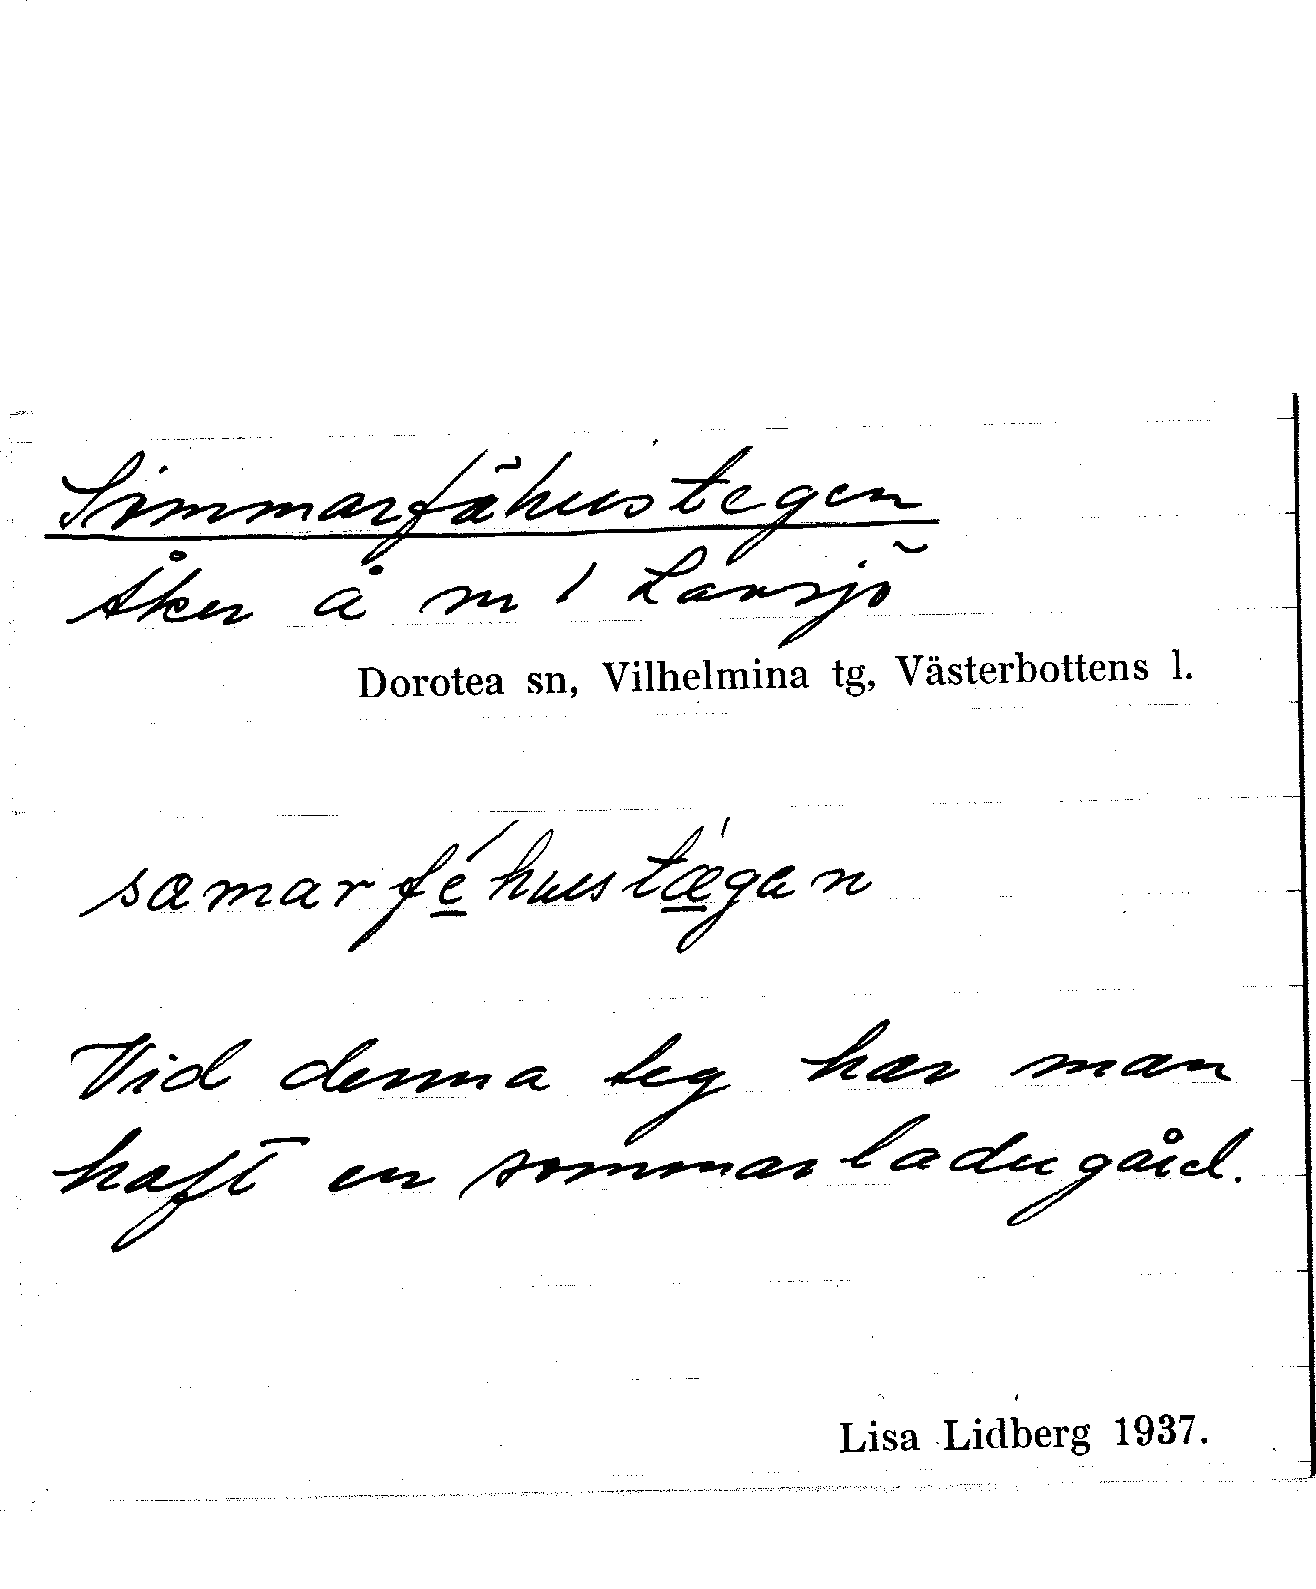 Sommarfähustegen
Åker å nr 1 Lavsjö
Dorotea sn, Vilhelmina tg, Västerbottens l.
sæmarféhustǽgan
Vid denna teg har man
haft en sommarladugård.
Lisa Lidberg 1937.